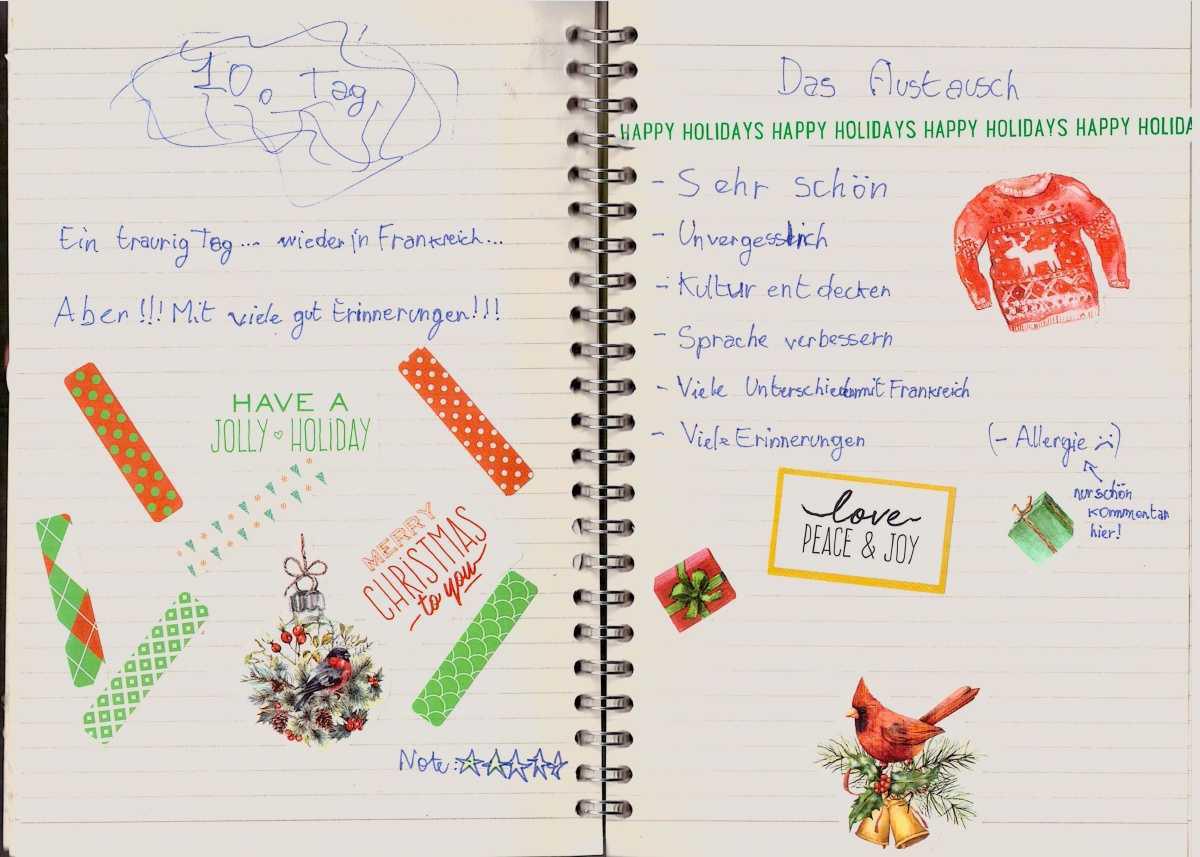 10. Tag
Ein traurig Tag... wieder in Frankreich...
Aber!!! Mit viele gut Erinnerungen!!!
HAVE A
JOLLY HOLIDAY
MERRY
CHRISTMAS
to you
Note:
Das Austausch
HAPPY HOLIDAYS HAPPY HOLIDAYS HAPPY HOLIDAYS HAPPY HOLIDA
- Sehr schön
- Unvergesslich
- Kultur entdecken
- Sprache verbessern
- Viele Unterschieden mit Frankreich
- Viele Erinnerungen
(- Allergie :()
nur schön
Kommentar
hier!
love
PEACE & JOY